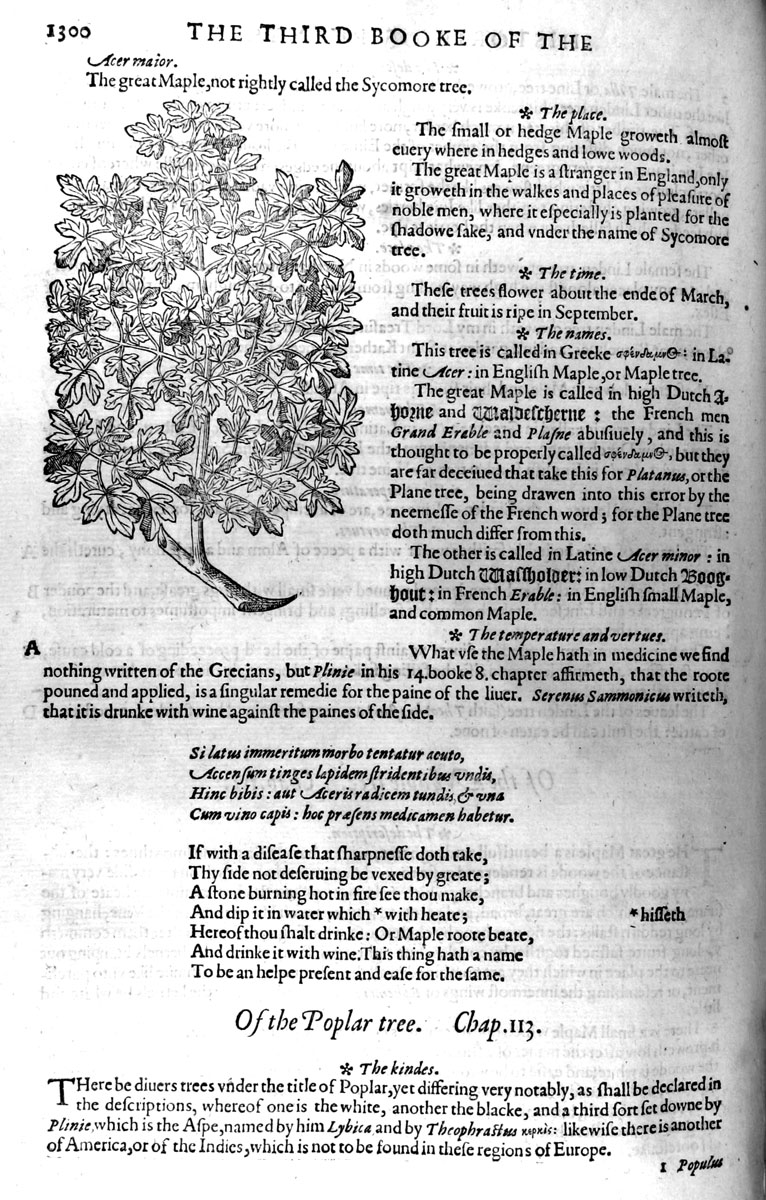 1300 THE THIRD BOOKE OF THE
Acer maior.
The great Maple, not rightly called the Sycomore tree.
* The place.
The ſmall or hedge Maple groweth almoſt
euery where in hedges and lowe woods.
The great Maple is a ſtranger in England, only
it groweth in the walkes and places of pleaſure of
noble men, where it eſpecially is planted for the
ſhadowe ſake, and vnder the name of Sycomore
tree.
* The time.
Theſe trees flower about the ende of March,
and their fruit is ripe in September.
* The names.
This tree is called in Greeke σφένδαμνος: in La-
tine Acer: in Engliſh Maple, or Maple tree.
The great Maple is called in high Dutch A-
horne and Waldeſcherne: the French men
Grand Erable and Plaſne abuſiuely, and this is
thought to be properly called σφένδαμνος, but they
are far deceiued that take this for Platanus, or the
Plane tree, being drawen into this error by the
neerneſſe of the French word; for the Plane tree
doth much differ from this.
The other is called in Latine Acer minor: in
high Dutch Waſſholder: in low Dutch Boog-
hout: in French Erable: in Engliſh ſmall Maple,
and common Maple.
* The temperature and vertues.
A What vſe the Maple hath in medicine we find
nothing written of the Grecians, but Plinie in his 14. booke 8. chapter affirmeth, that the roote
pouned and applied, is a ſingular remedie for the paine of the liuer. Serenus Sammonicus writeth,
that it is drunke with wine againſt the paines of the ſide.
Si latus immeritum morbo tentatur acuto,
Accenſum tinges lapidem ſtridentibus vndis,
Hinc bibis: aut Aceris radicem tundis, & vna
Cum vino capis: hoc præſens medicamen habetur.
If with a diſeaſe that ſharpneſſe doth take,
Thy ſide not deſeruing be vexed by greate;
A ſtone burning hot in fire ſee thou make,
And dip it in water which * with heate; * hiſſeth
Hereof thou ſhalt drinke: Or Maple roote beate,
And drinke it with wine. This thing hath a name
To be an helpe preſent and eaſe for the ſame.
Of the Poplar tree. Chap. 113.
* The kindes.
THere be diuers trees vnder the title of Poplar, yet differing very notably, as ſhall be declared in
the deſcriptions, whereof one is the white, another the blacke, and a third ſort ſet downe by
Plinie, which is the Aſpe, named by him Lybica, and by Theophraſtus κερκὶς: likewiſe there is another
of America, or of the Indies, which is not to be found in theſe regions of Europe.
1 Populus